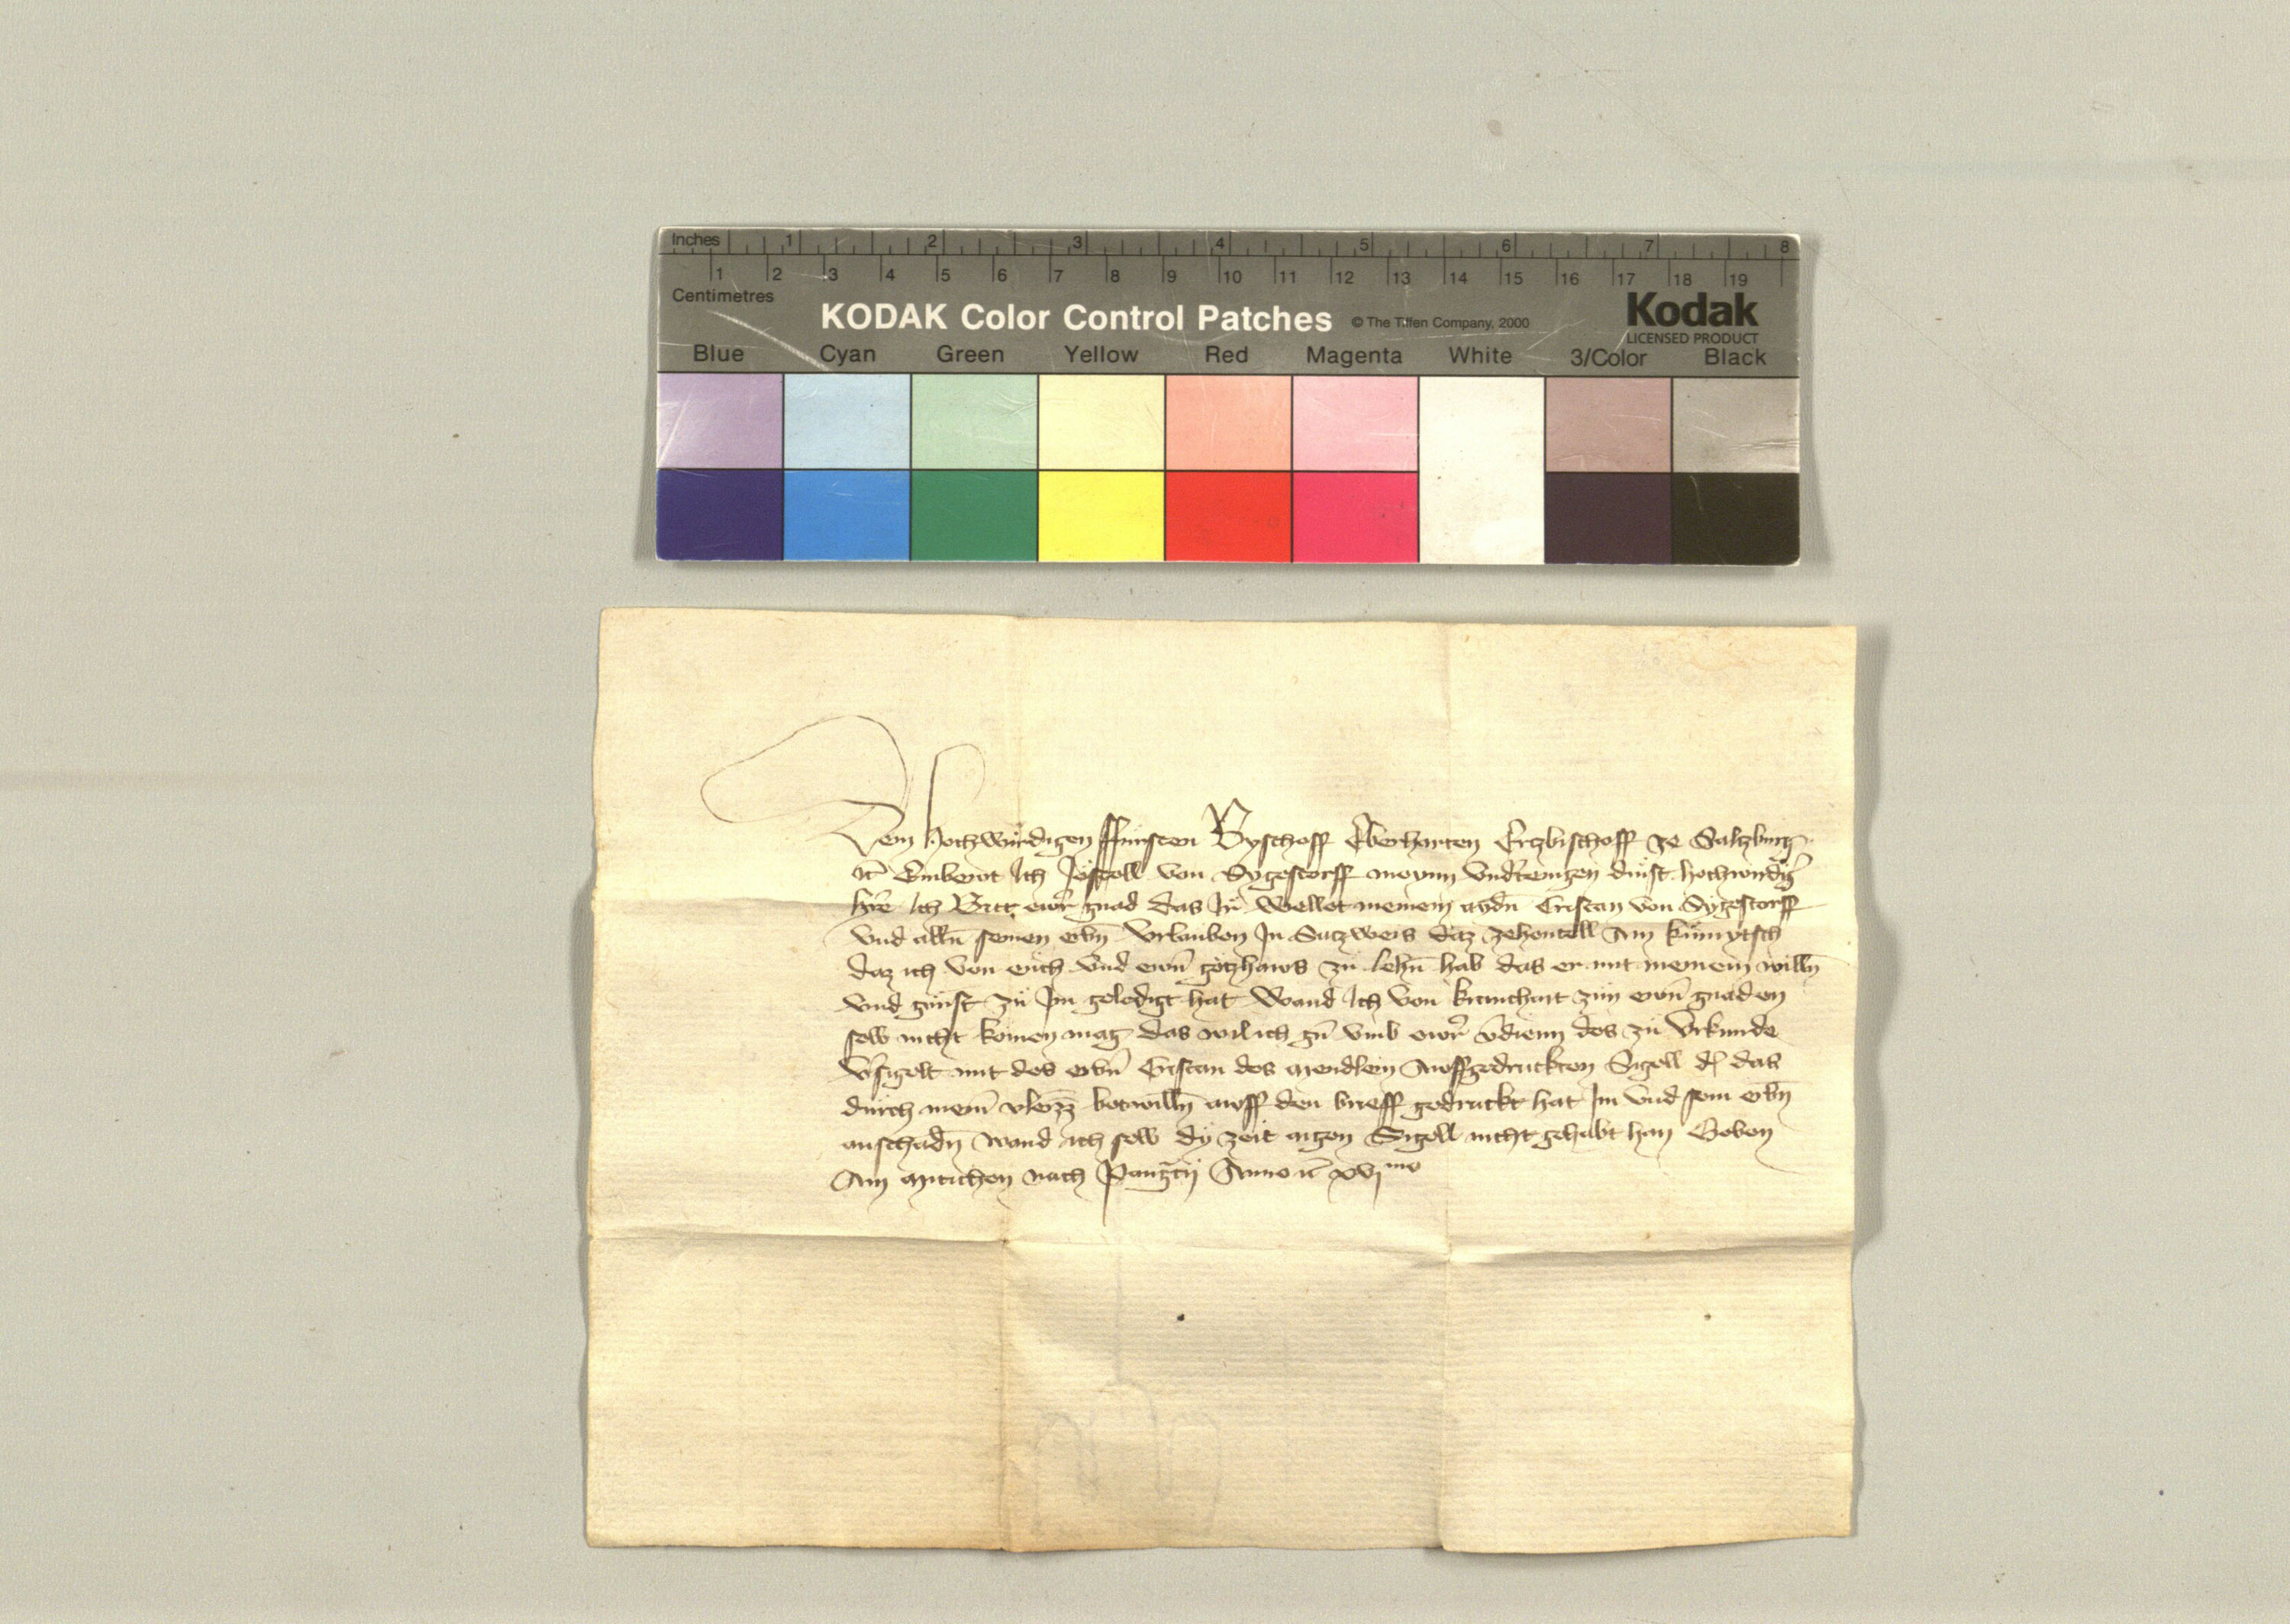 Inches 1 2 3 4 5 6 7 8
1 2 3 4 5 6 7 8 9 10 11 12 13 14 15 16 17 18 19
Centimetres
KODAK Color Control Patches © The Tiffen Company, 2000 Kodak
LICENSED PRODUCT
Blue Cyan Green Yellow Red Magenta White 3/Color Black
Dem hochwürdigen ffürsten Byschoff Eberharten Ertzbischoff ze Saltzburg
Embewt Ich Jöstell von Sygestorff meynn vnd̄tenigen dinst hochwirdiḡ
h̄re Ich Bitt ewr̄ gnad das Ir wellet meinem aydn̄ Cristan von Sygestorff
vnd alln̄ seinen erbn̄ vrlauben In Satzweis daz zehentell Am
daz ich von euch vnd ewrn̄ gotzhaws zu lehn̄ hab das er mit meinem willn̄
vnd günst zu Im geledigt hat Wand Ich von kranchait zun ewrn̄ gnaden
selb nicht komen mag das wil ich gn̄ vmb ewr̄ v̄dienn des zu vrkunde
v̄sigelt mit des erbn̄ Cristan des aufgedruckten Sigell d̄ das
durch mein̄ willn̄ awff den brieff gedruckt hat Im vnd sein erbn̄
anschadn̄ wand ich selb dy zeit aigen Sigell nicht gehabt han Geben
Am mitichen nach Pangr̄cij Anno xvjmo